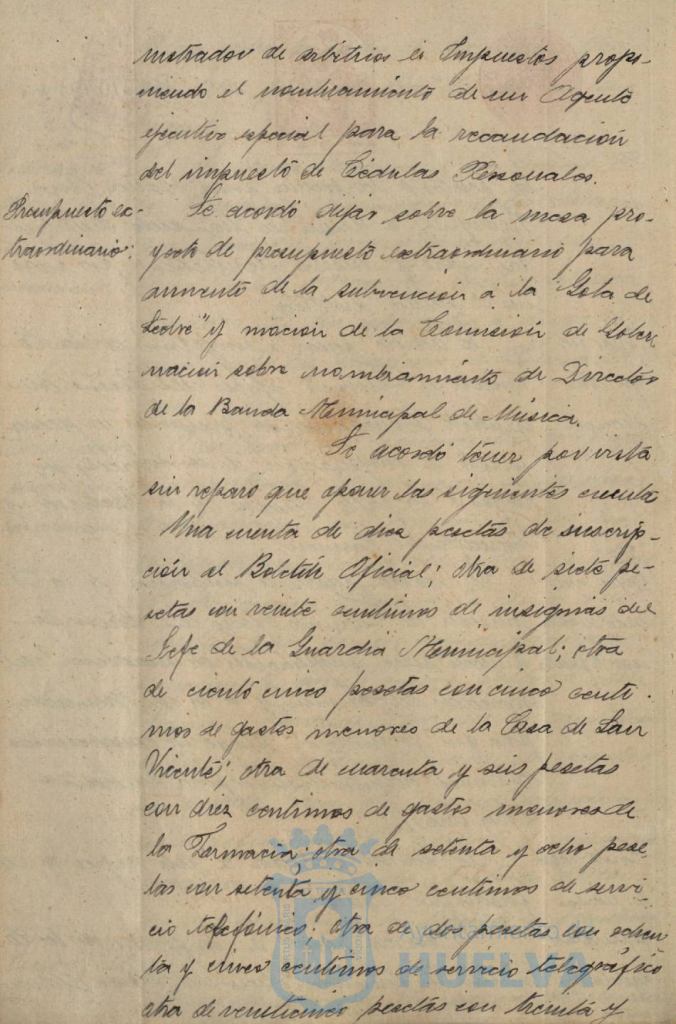 nistrador de arbitrios é Impuestos propo-
niendo el nombramiento de un Agente
ejecutivo especial para la recaudación
del impuesto de Cédulas Personales.
Presupuesto ex-
traordinario:
Se acordó dejar sobre la mesa pro-
yecto de presupuesto extraordinario para
aumento de la subvención á la Gota de
Leche" y moción de la Comisión de Gober
nación sobre nombramiento de Director
de la Banda Municipal de Música.
Se acordó tener por vista
sin reparo que oponer las siguientes cuenta
Una cuenta de diez pesetas de suscrip-
ción al Boletín Oficial; otra de siete pe-
setas con veinte centimos de insignias del
Jefe de la Guardia Municipal; otra
de ciento cinco pesetas con cinco centi-
mos de gastos menores de la Casa de San
Vicente; otra de cuarenta y seis pesetas
con diez centimos de gastos menores de
la Farmacia; otra de setenta y ocho pese
tas con setenta y cinco centimos de servi-
cio telefónico: otra de dos pesetas con ochen
ta y cinco centimos de servicio telegráfico
otra de veinticinco pesetas con treinta y
HUELVA